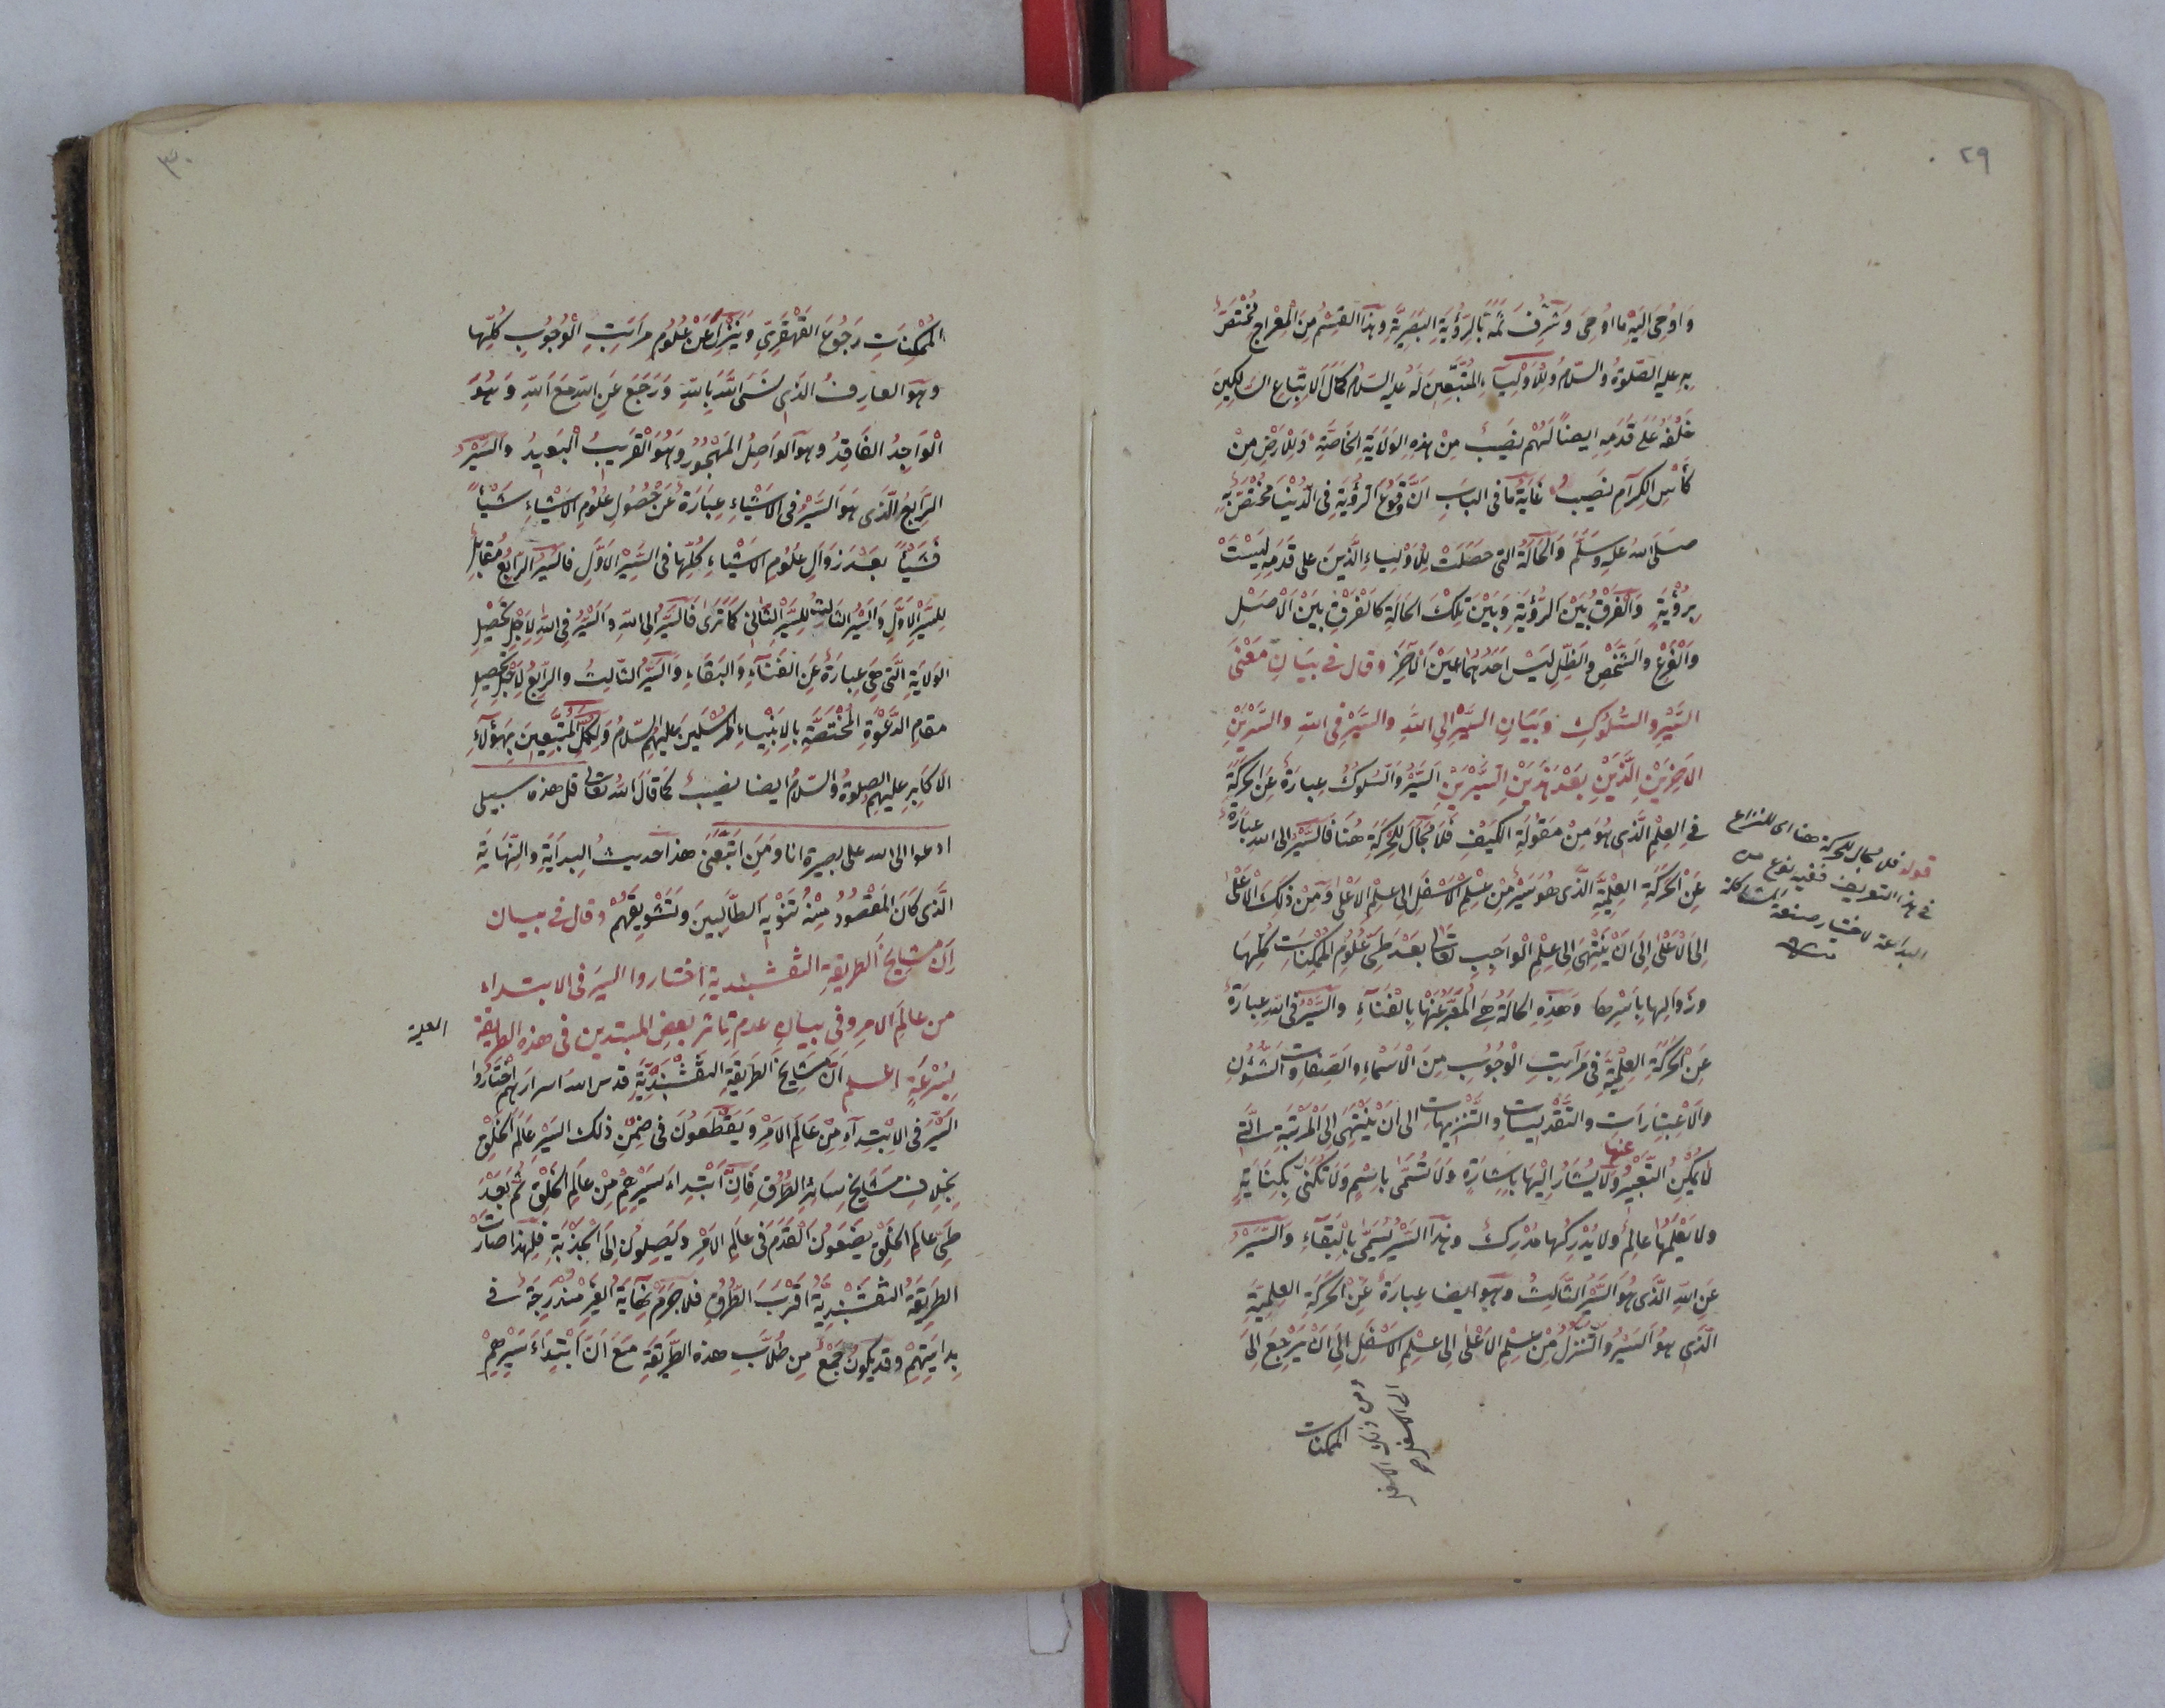 ٢٩
وَاوُحِىَ اليَهِ ما اوُحِىَ وَشُرِّفَ ثَمَّةَ بالرّؤيَةِ البَصَرِيَّةِ وهذا القِسْمُ مِنَ المِعْرَاجِ مُخْتَصٌّ
بِهِ عليه الصّلوةُ والسّلامُ وللاَوْلِيَآءِ المُتَّبِعِينَ لَهُ عليه السّلامُ كَمَالَ الاِتّبَاعِ السّالِكِينَ
تَحْتَ قَدَمِهِ ايضاً لَهُمْ نصَيبٌ مِنْ هذِهِ الوَلَايَةِ الخَاصَّةِ وَلِلْاَرْضِ مِنْ
كَأْسِ الكِرَامِ نصَيبٌ غَايَةُ ما فى البابِ اَنَّ وُقُوعَ الرُّؤيَةِ فى الدُّنْيَا مُخْتَصٌّ بِهِ
صَلّى اللهُ عليهِ وَسَلَّمَ وَالحَالَةُ التى حَصَلَتْ لِلْاَوْلِياءِ الَّذينَ على قَدَمِهِ لَيسَتْ
بِرُؤْيَةٍ وَالْفَرْقُ بَيْنَ الرُّؤيَةِ وَبَيْنَ تِلْكَ الحَالَةِ كَالْفَرْقِ بَيْنَ الْاَصْلِ
وَالْفَرْعِ والشَّخْصِ والظِّلِّ لَيْسَ اَحَدُهُمَا عَيْنَ الْآخَرِ وقال فى بيَانِ مَعْنَى
السَّيْرِ والسُّلُوكِ وَبَيَانِ السَّيْرِ الى اللهِ والسَّيْرِ فى اللهِ والسَّيْرَيْنِ
الاَخِيرَيْنِ الَّذَيْنِ بَعْدَ هَذَيْنِ السَّيْرَيْنِ اَلسَّيْرُ وَالسُّلُوكُ عِبارَةٌ عَنِ الحَرَكَةِ
فى العِلْمِ الَّذى هُوَ مِنْ مَقُولَةِ الكَيْفِ فَلَا مَجَالَ لِلْحَرَكَةِ هُنَا فالسَّيْرُ الى الله عِبَارَةٌ
عَنِ الْحَرَكَةِ العِلْمِيَّةِ الَّذى هُوَ سَيْرٌ مِنْ عِلْمِ الْاَسْفَلِ الى عِلْمِ الاَعْلَى وَمِنْ ذلِكَ الْاَعْلَى
اِلى الاَعْلَى اِلى اَنْ يَنْتَهِىَ الى عِلْمِ الْواجِبِ تعالى بَعْدَ طَىِّ عُلُومِ المُمْكِنَاتِ كُلِّهَا
وزَوَالِها بِاَسْرِهَا وَهذِهِ الحَالَةُ هِىَ الْمُعَبَّرُ عَنْهَا بِالْفَنَآءِ والسَّيْرُ فى اللهِ عِبَارَةٌ
عَنِ الْحَرَكَةِ العِلْمِيَّةِ فى مَرَاتِبِ الْوُجُوبِ مِنَ الْاَسْمَاءِ والصِّفَاتِ والشُّؤُنِ
وَالاِعْتِبَارَاتِ والتَّقْدِيسَاتِ والتَّنْزِيهَاتِ الى اَنْ يَنْتَهِىَ اِلَى الْمَرْتَبَةِ الَّتى
لَا يُمْكِنُ التَّعْبِيْرُ عنها وَلَا يُشَارُ اِلَيْهَا بِاِشَارَةٍ وَلَا تُسَمَّى بِاسْمٍ وَلَا تُكَنّى بِكِنَايَةٍ
ولا يَعْلَمُهَا عالِمٌ ولا يُدْرِكُهَا مُدْرِكٌ وهذا السَّيْرُ يُسَمّى بِالْبَقَآءِ والسَّيْرُ
عَنِ اللهِ الَّذى هُوَ السَّيْرُ الثَّالِثُ وهو ايضا عِبارَةٌ عَنِ الْحَرَكَةِ العِلْمِيَّةِ
الَّذى هُوَ السَّيْرُ والتَّنَزُّلُ مِنْ عِلْمِ الاَعْلَى الى عِلْمِ الاَسْفَلِ اِلَى اَنْ يَرْجِعَ اِلَى
قوله فلا مجال للحركة هنا اى للنزاع
فى هذا التعريف ففيه نوع من
البداعة لاختيار صنعة المشاكلة
ومن ذلك الاسفل
الى الاسفل صح
الممكنات
٣٠
المُمْكِنَاتِ رَجُوعَ القَهْقَرِىِّ وَيَنْزِلَ عَنْ عُلُومِ مرَاتِبِ الْوُجُوبِ كُلِّهَا
وهَوَ العارِفُ الَّذى نَسِىَ اللهَ بِاللهِ وَرَجَعَ عَنِ اللهِ مَعَ اللهِ وَهُوَ
الْوَاجِدُ الفَاقِدُ وهو الوَاصِلُ المَهْجُورُ وَهُوَ الْقَرِيبُ الْبَعِيدُ والسَّيْرُ
الرّابِعُ الَّذى هُوَ السَّيْرُ فى الاَشْيَاءِ عِبَارَةٌ عَنْ حُصُولِ عُلُومِ الاَشْيَاءِ شَيْأً
فَشَيْأً بَعْدَ زَوَالِ عُلُومِ الاَشْيَاءِ كُلِّهَا فى السَّيْرِ الاَوَّلِ فالسَّيْرُ الرّابِعُ مُقَابِلٌ
لِلسَّيْرِ الاَوَّلِ والسَّيْرُ الثَالِثُ للسَّيْرِ الثَّانِى كَمَا تَرى فَالسَّيْرُ الى اللهِ وَالسَّيْرُ فى اللهِ لِاَجْلِ تَحْصِيلِ
الوَلَايَةِ الَّتى هِىَ عِبَارَةٌ عَنِ الفَنَآءِ وَالبَقَاءِ وَالسَّيْرُ الثّالِثُ والرّابِعُ لِاَجْلِ تَحْصِيلِ
مقامِ الدَّعْوَةِ المُخْتَصَّةِ بِالاَنْبِيَاءِ المُرْسَلِينَ عَلَيْهِمُ السّلامُ وَلِكُمَّلِ المُتَّبِعِينَ بِهؤلآءِ
الاكابِرِ عليهم الصلوةُ والسّلامُ ايضا نصيبٌ كَمَا قالَ اللهُ تعالى قل هذه سبيلى
ادعوا الى الله على بصيرة انا وَمَنِ اتَّبَعَنِى هذا حديثُ البِدَايَةِ والنِّهَايَةِ
الَّذى كَانَ المَقْصُودُ مِنْهُ تَنْوِيهَ الطّالِبِينَ وَتَشْوِيقَهُمْ وقال فى بيان
اَنّ مشايخَ الطريقةِ النقشبنديةِ اختاروا السيرَ فى الابتداء
من عالَمِ الامر وفى بيانِ عدمِ تاثر بعضِ المبتدين فى هذه الطريقة العلية
بِسُرْعَةٍ اعلم اَنَّ مَشَايِخَ الطريقَةِ النّقشْبَنْديَّةِ قدس الله اسرارَهم اخْتَارُوا
السَّيْرَ فى الاِبْتِدآءِ مِنْ عَالَمِ الامْرِ وَيَقْطَعُونَ فى ضِمْنِ ذلك السَّيْرِ عَالَمَ الخَلْقِ
بِخِلَافِ مَشَايِخِ سَائِرِ الطُّرُقِ فَاِنَّ ابْتِداءَ سَيْرِهِمْ مِنْ عَالَمِ الخَلْقِ ثُمَّ بَعْدَ
طَىِّ عالَمِ الخَلْقِ يَضَعُونَ الْقَدَمَ فى عَالَمِ الاَمْرِ وَيَصِلُونَ اِلَى الْجَذْبَةِ فَلِهَذا صَارَتْ
الطريقَةُ النّقشبنديةُ اَقْرَبَ الطُّرُقِ فلا جَرَمَ نِهايَةُ الغَيْرِ مُنْدَرِجَةٌ فى
بِدايَتِهِمْ وقد يَكُونُ جَمْعٌ مِن طُلَّابِ هذه الطَّرِيقَةِ مَعَ اَنَّ ابْتِدَاءَ سَيْرِهِمْ